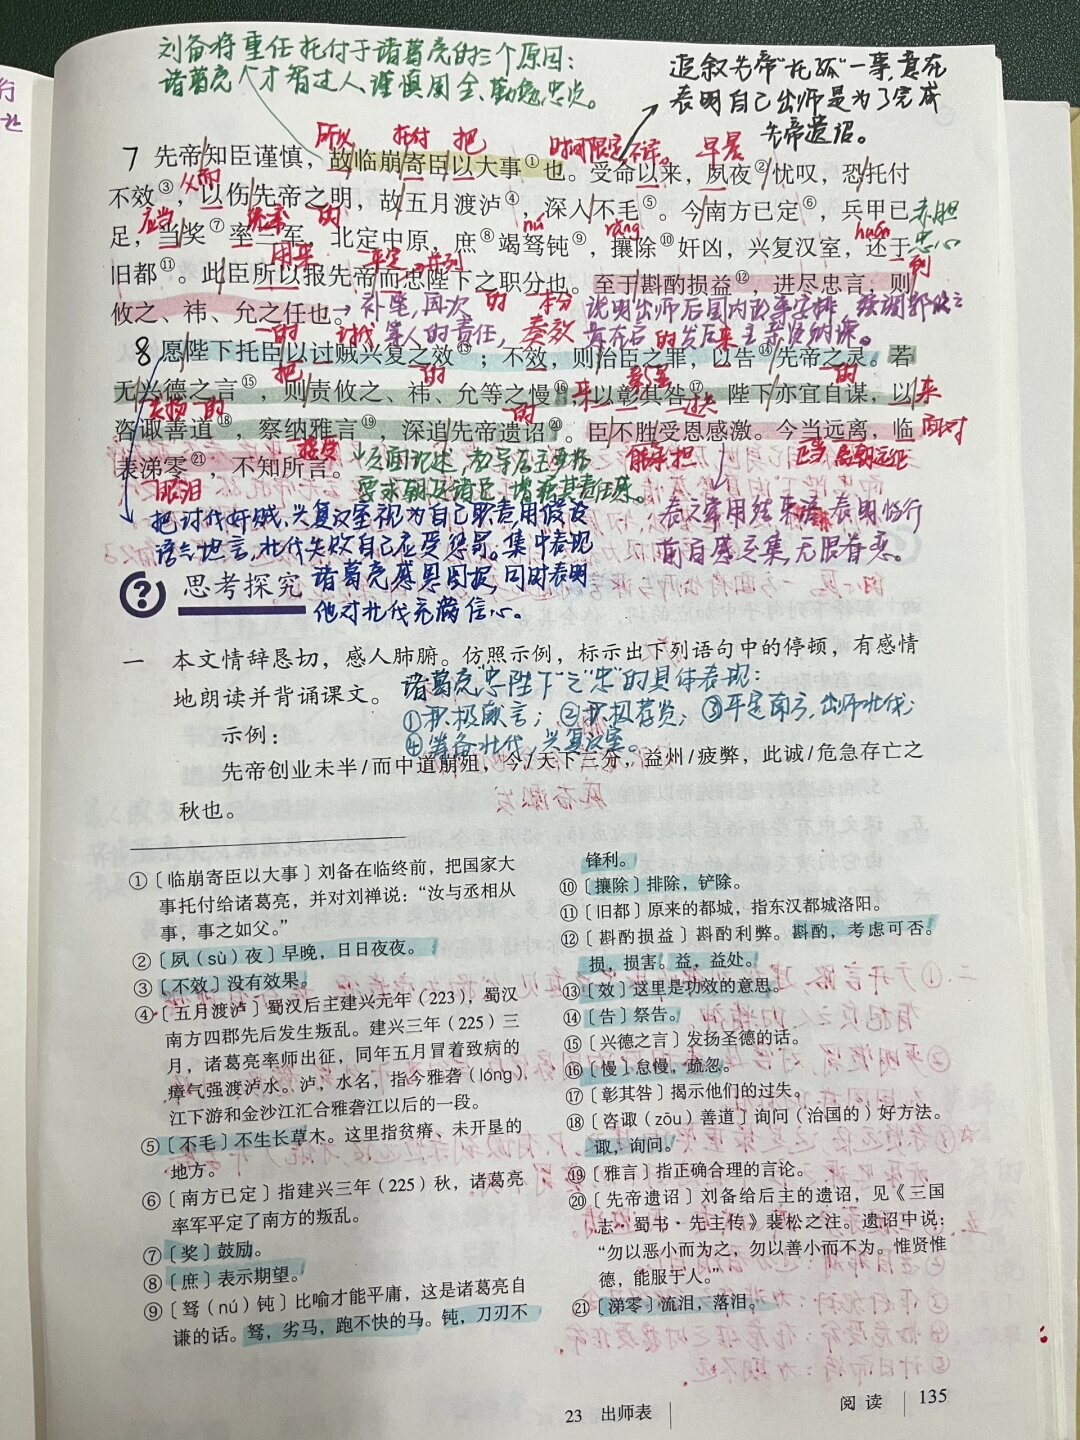 刘备将重任托付于诸葛亮的三个原因:
诸葛亮个才智过人、谨慎周全、勤勉忠贞。
追叙先帝"托孤"一事,意在
表明自己出师是为了完成
先帝遗诏。
所以 托付 把 时间限定 早晨
7 先帝知臣谨慎，故临崩寄臣以大事①也。受命以来，夙夜②忧叹，恐托付
从而
不效③，以伤先帝之明，故五月渡泸④，深入不毛⑤。今南方已定⑥，兵甲已
应当 的 nú rǎng huán 赤胆
忠心
足，当奖⑦率三军，北定中原，庶⑧竭驽钝⑨，攘除⑩奸凶，兴复汉室，还于
用来 并列
旧都⑪。此臣所以报先帝而忠陛下之职分也。至于斟酌损益⑫，进尽忠言，则
攸之、祎、允之任也。
→补笔,再次 的 本分 说明出师后国内政事安排 强调郭攸之
的 讨伐 等人的责任, 奏效 意在 的
8 愿陛下托臣以讨贼兴复之效⑬；不效，则治臣之罪，以告⑭先帝之灵。若
把 的 来 的
无兴德之言⑮，则责攸之、祎、允等之慢⑯，以彰其咎⑰。陛下亦宜自谋，以
来
发扬 的 的 过失
咨诹善道⑱，察纳雅言⑲，深追先帝遗诏⑳。臣不胜受恩感激。今当远离，临
面对
接受
表涕零㉑，不知所言。
眼泪
要求朝廷诸臣 增强其责任感。
把讨伐奸贼、兴复汉室视为自己职责,用假设
语气地言,北伐失败自己应受惩罚。集中表现
诸葛亮感恩图报,同时表明
他对北伐充满信心。
表文常用结束语 表明临行
前百感交集,无限眷恋。
思考探究
一 本文情辞恳切，感人肺腑。仿照示例，标示出下列语句中的停顿，有感情
地朗读并背诵课文。
诸葛亮"忠陛下"之"忠"的具体表现:
①积极献言;②积极荐贤;③平定南方,出师北伐;
④筹备北伐,兴复汉室。
示例：
先帝创业未半/而中道崩殂，今/天下三分，益州/疲弊，此诚/危急存亡之
秋也。
①〔临崩寄臣以大事〕刘备在临终前，把国家大
事托付给诸葛亮，并对刘禅说：“汝与丞相从
事，事之如父。”
②〔夙（sù）夜〕早晚，日日夜夜。
③〔不效〕没有效果。
④〔五月渡泸〕蜀汉后主建兴元年（223），蜀汉
南方四郡先后发生叛乱。建兴三年（225）三
月，诸葛亮率师出征，同年五月冒着致病的
瘴气强渡泸水。泸，水名，指今雅砻（lóng）
江下游和金沙江汇合雅砻江以后的一段。
⑤〔不毛〕不生长草木。这里指贫瘠、未开垦的
地方。
⑥〔南方已定〕指建兴三年（225）秋，诸葛亮
率军平定了南方的叛乱。
⑦〔奖〕鼓励。
⑧〔庶〕表示期望。
⑨〔驽（nú）钝〕比喻才能平庸，这是诸葛亮自
谦的话。驽，劣马，跑不快的马。钝，刀刃不
锋利。
⑩〔攘除〕排除，铲除。
⑪〔旧都〕原来的都城，指东汉都城洛阳。
⑫〔斟酌损益〕斟酌利弊。斟酌，考虑可否。
损，损害。益，益处。
⑬〔效〕这里是功效的意思。
⑭〔告〕祭告。
⑮〔兴德之言〕发扬圣德的话。
⑯〔慢〕怠慢，疏忽。
⑰〔彰其咎〕揭示他们的过失。
⑱〔咨诹（zōu）善道〕询问（治国的）好方法。
诹，询问。
⑲〔雅言〕指正确合理的言论。
⑳〔先帝遗诏〕刘备给后主的遗诏，见《三国
志·蜀书·先主传》裴松之注。遗诏中说：
“勿以恶小而为之，勿以善小而不为。惟贤惟
德，能服于人。”
㉑〔涕零〕流泪，落泪。
23 出师表
阅读 135